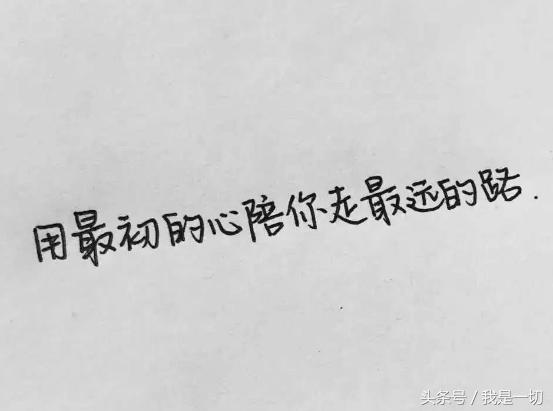 用最初的心陪你走最远的路.
头条号/我是一切